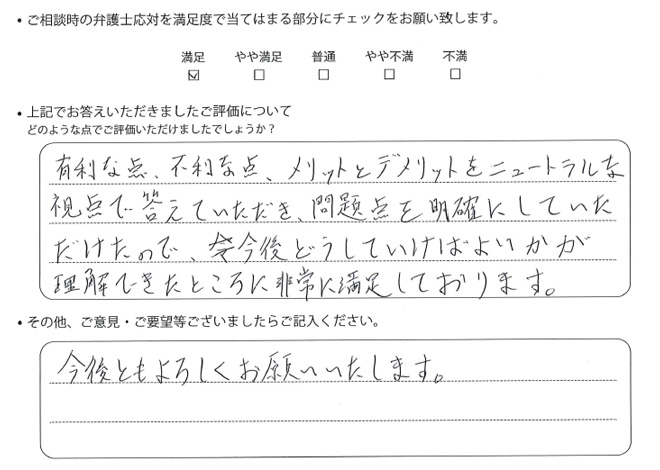 ・ご相談時の弁護士応対を満足度で当てはまる部分にチェックをお願い致します。
満足 やや満足 普通 やや不満 不満
☑ □ □ □ □
・上記でお答えいただきましたご評価について
どのような点でご評価いただけましたでしょうか？
有利な点、不利な点、メリットとデメリットをニュートラルな
視点で答えていただき、問題点を明確にしていた
だけたので、今後どうしていけばよいかが
理解できたところに非常に満足しております。
・その他、ご意見・ご要望等ございましたらご記入ください。
今後ともよろしくお願いいたします。